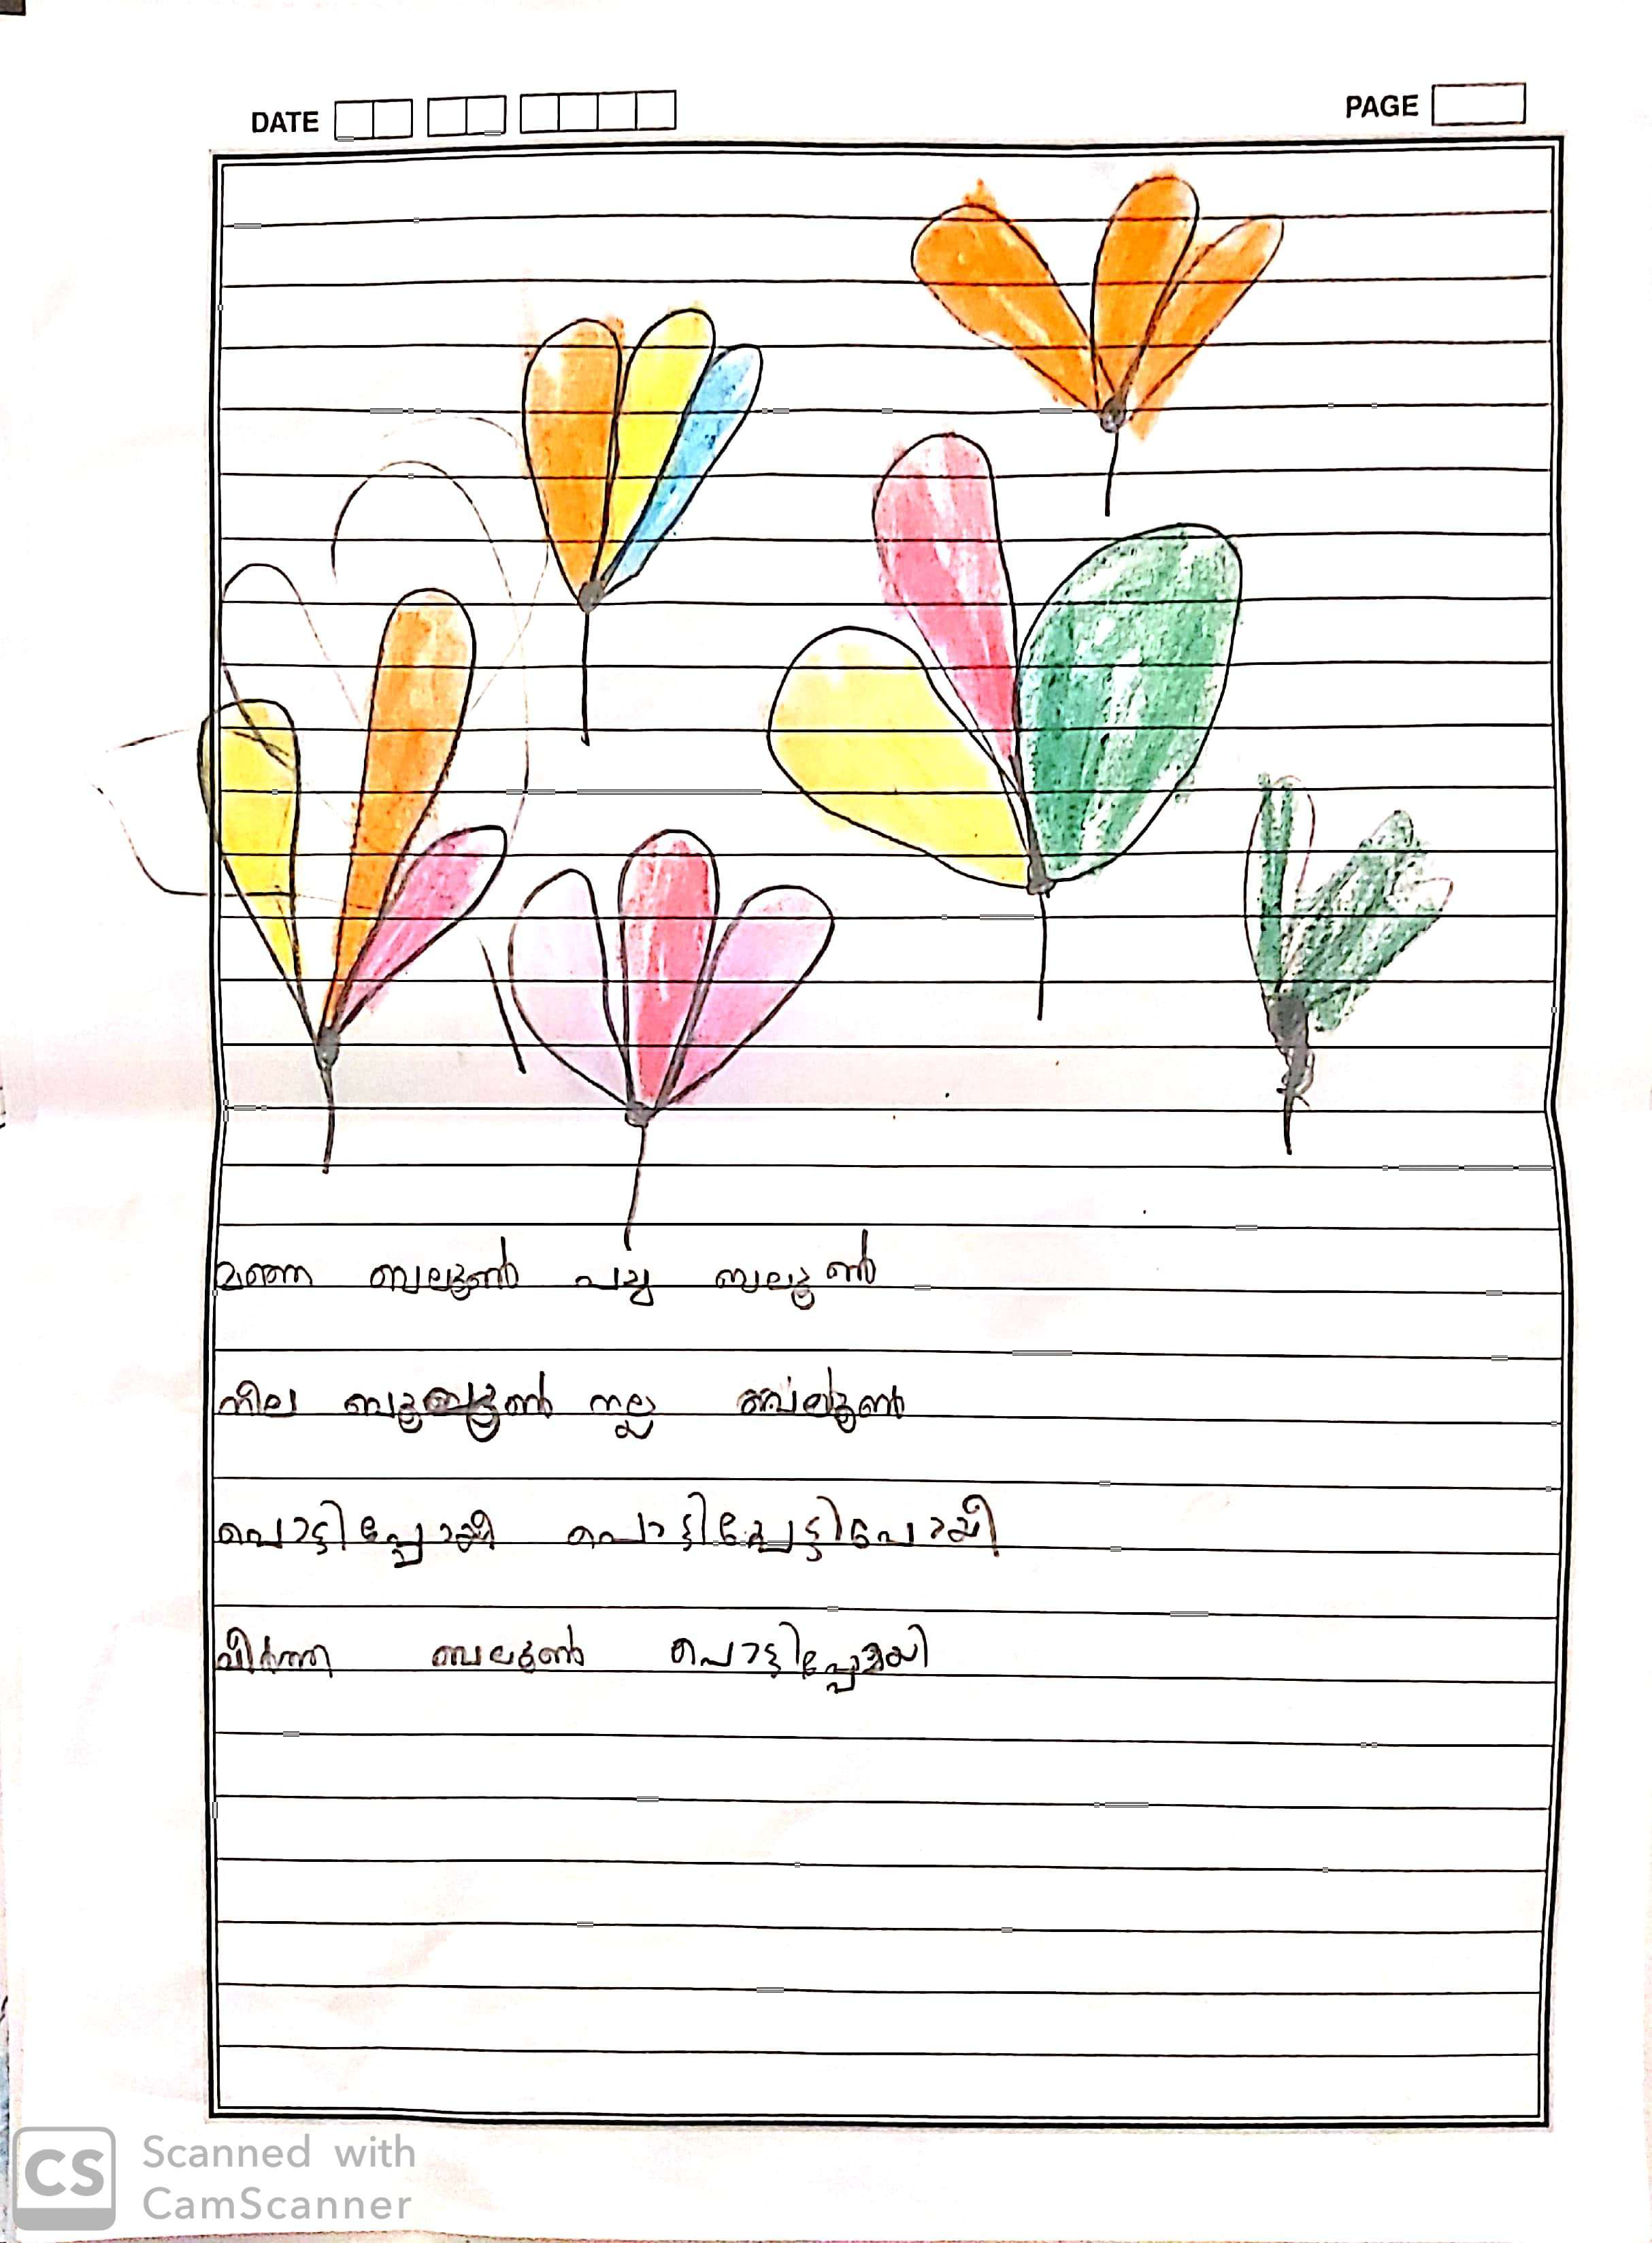 DATE PAGE
മഞ്ഞ ബലൂൺ പച്ച ബലൂൺ
നീല നല്ല ബലൂൺ
പൊട്ടിപ്പോയീ
വീർത്ത ബലൂൺ പൊട്ടിപ്പോയി
CS Scanned with
CamScanner